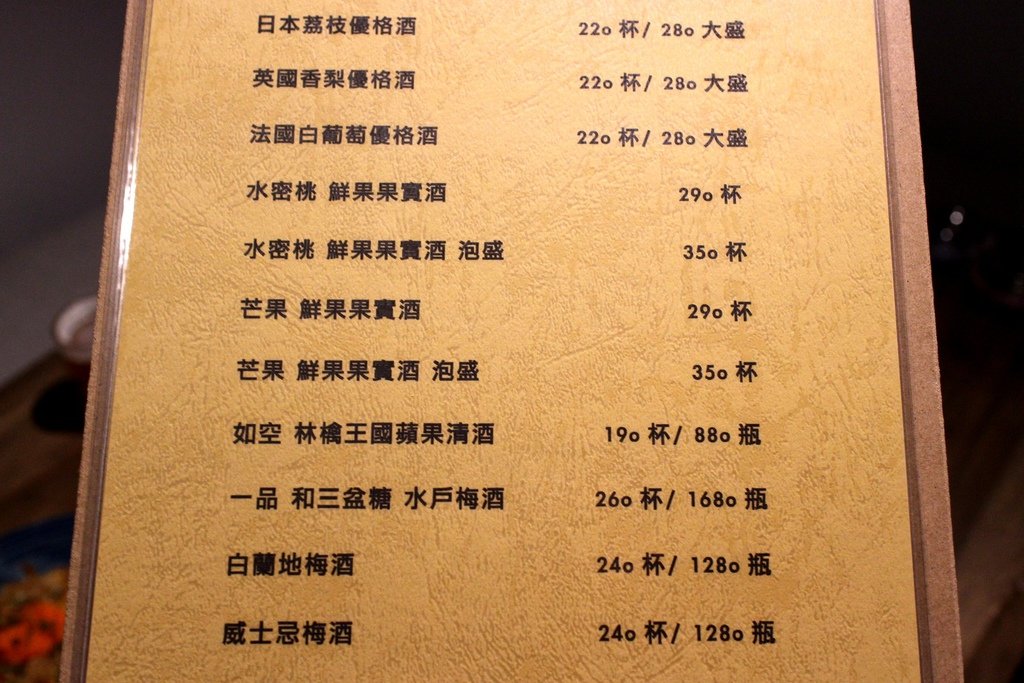 日本荔枝優格酒 220 杯/ 280 大盛
英國香梨優格酒 220 杯/ 280 大盛
法國白葡萄優格酒 220 杯/ 280 大盛
水密桃 鮮果果實酒 290 杯
水密桃 鮮果果實酒 泡盛 350 杯
芒果 鮮果果實酒 290 杯
芒果 鮮果果實酒 泡盛 350 杯
如空 林檎王國蘋果清酒 190 杯/ 880 瓶
一品 和三盆糖 水戶梅酒 260 杯/ 1680 瓶
白蘭地梅酒 240 杯/ 1280 瓶
威士忌梅酒 240 杯/ 1280 瓶